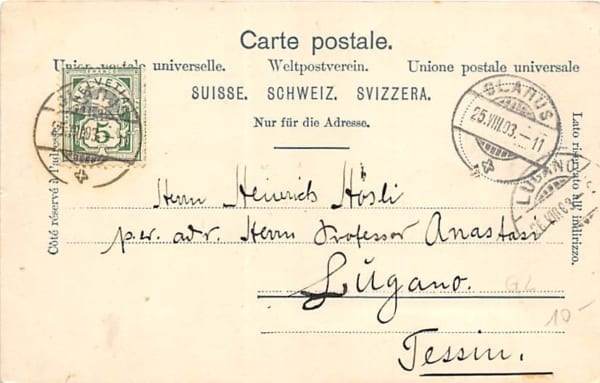 Carte postale.
Union postale universelle. Weltpostverein. Unione postale universale
SUISSE. SCHWEIZ. SVIZZERA.
Nur für die Adresse.
HELVETIA
5
GLARUS
25.VIII.03.
GLARUS
25.VIII.03.-11
LUGANO
Côté réservé à l'adresse.
Lato riservato all'indirizzo.
Herrn Heinrich Hösli
p. adr. Herrn Professor Anastasi
Lŭgano.
Tessin.
GL
10-